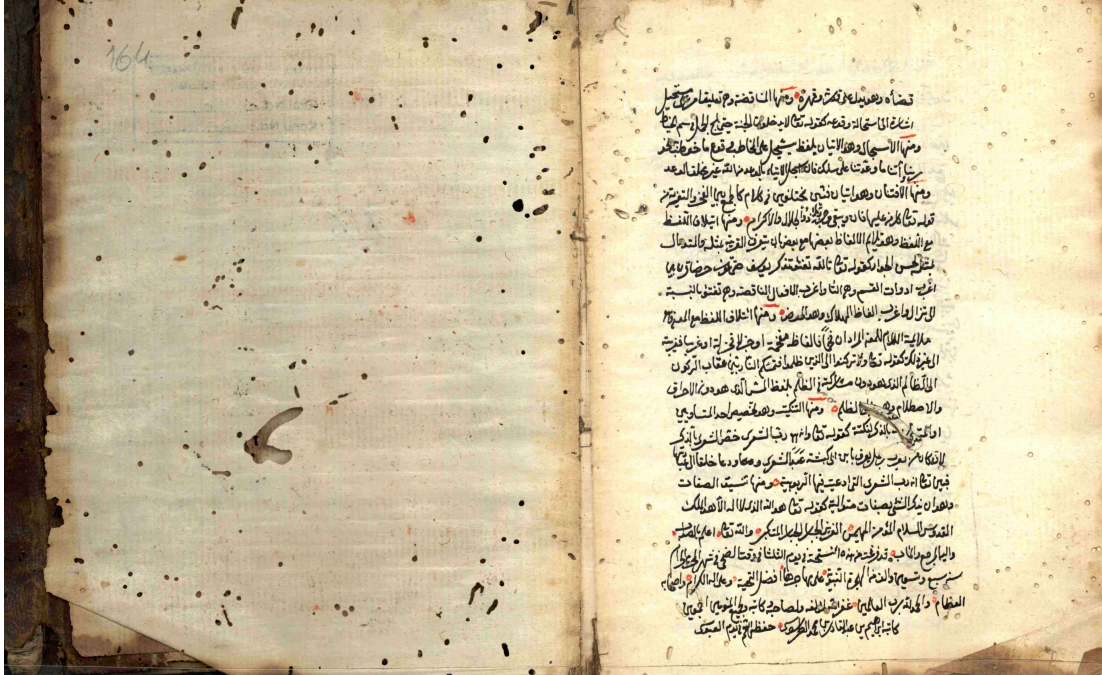 164
قضاه وهو يدل على قدرته وقهره ومنها المناقضة وهي تعليق امر على مستحيل
اشارة الى استحالة وقوعه كقوله تعالى لا يدخلون الجنة حتى يلج الجمل في سم الخياط
ومنها الاسجال وهو الاتيان بلفظ يسجل على المخاطب وقوع ما خوطب به نحو
ربنا وآتنا ما وعدتنا على رسلك فان الاتيان بالوعد من الله غير مخلف الوعد
ومنها الافتنان وهو اتيان فنين مختلفين في كلام كالجمع بين الفخر والتعزية في
قوله تعالى كل من عليها فان ويبقى وجه ربك ذو الجلال والاكرام ومنها ايتلاف اللفظ
مع اللفظ وهو تلايم الالفاظ بعضها مع بعض بان يقرن الغريب بمثله والمتداول
بمثله لحسن الجوار كقوله تعالى تالله تفتؤ تذكر يوسف حتى تكون حرضا اتى
اغرب ادوات القسم وهي التا واغرب الافعال الناقصة وهي تفتؤ بالنسبة
الى تزال واغرب الفاظ الهلاك وهو الحرض ومنها ائتلاف اللفظ مع المعنى وهو
ملائمة الكلام للمعنى المراد ان فخما فالفاظه مفخمة او جزلا فجزلة او غريبا فغريبة
الى غير ذلك كقوله تعالى ولا تركنوا الى الذين ظلموا فتمسكم النار بين عقاب الركون
الى الظالم الذي هو دون مشاركته في الظلم بلفظ المس الذي هو دون الاحراق
والاصطلام وهو الظلم ومنها التنكيت وهو تخصيص احد المتساويين
بالذكر لنكتة كقوله تعالى وانه هو رب الشعرى خص الشعرى بالذكر
لانه كان يعرف بابن ابي كبشة عبد الشعرى ودعا خلقا الى عبادتها
فبين تعالى انه رب الشعرى التي ادعيت فيها الربوبية ومنها تنسيق الصفات
وهو ان يذكر الشئ بصفات متوالية كقوله تعالى هو الله الذي لا اله الا هو الملك
القدوس السلام المؤمن المهيمن العزيز الجبار المتكبر والله تعالى اعلم بالصواب
واليه المرجع والمآب قد فرغت من هذه النسخة في يوم الثلثا في وقت الضحى في شهر
سنة سبع وتسعين والف من الهجرة النبوية على صاحبها افضل التحية وعلى اله الكرام واصحابه
العظام والحمد لله رب العالمين غفر الله له ولصاحبه وكاتبه ولجميع المؤمنين اجمعين
كاتبه ابراهيم بن عبد القادر بن محمد حفظ